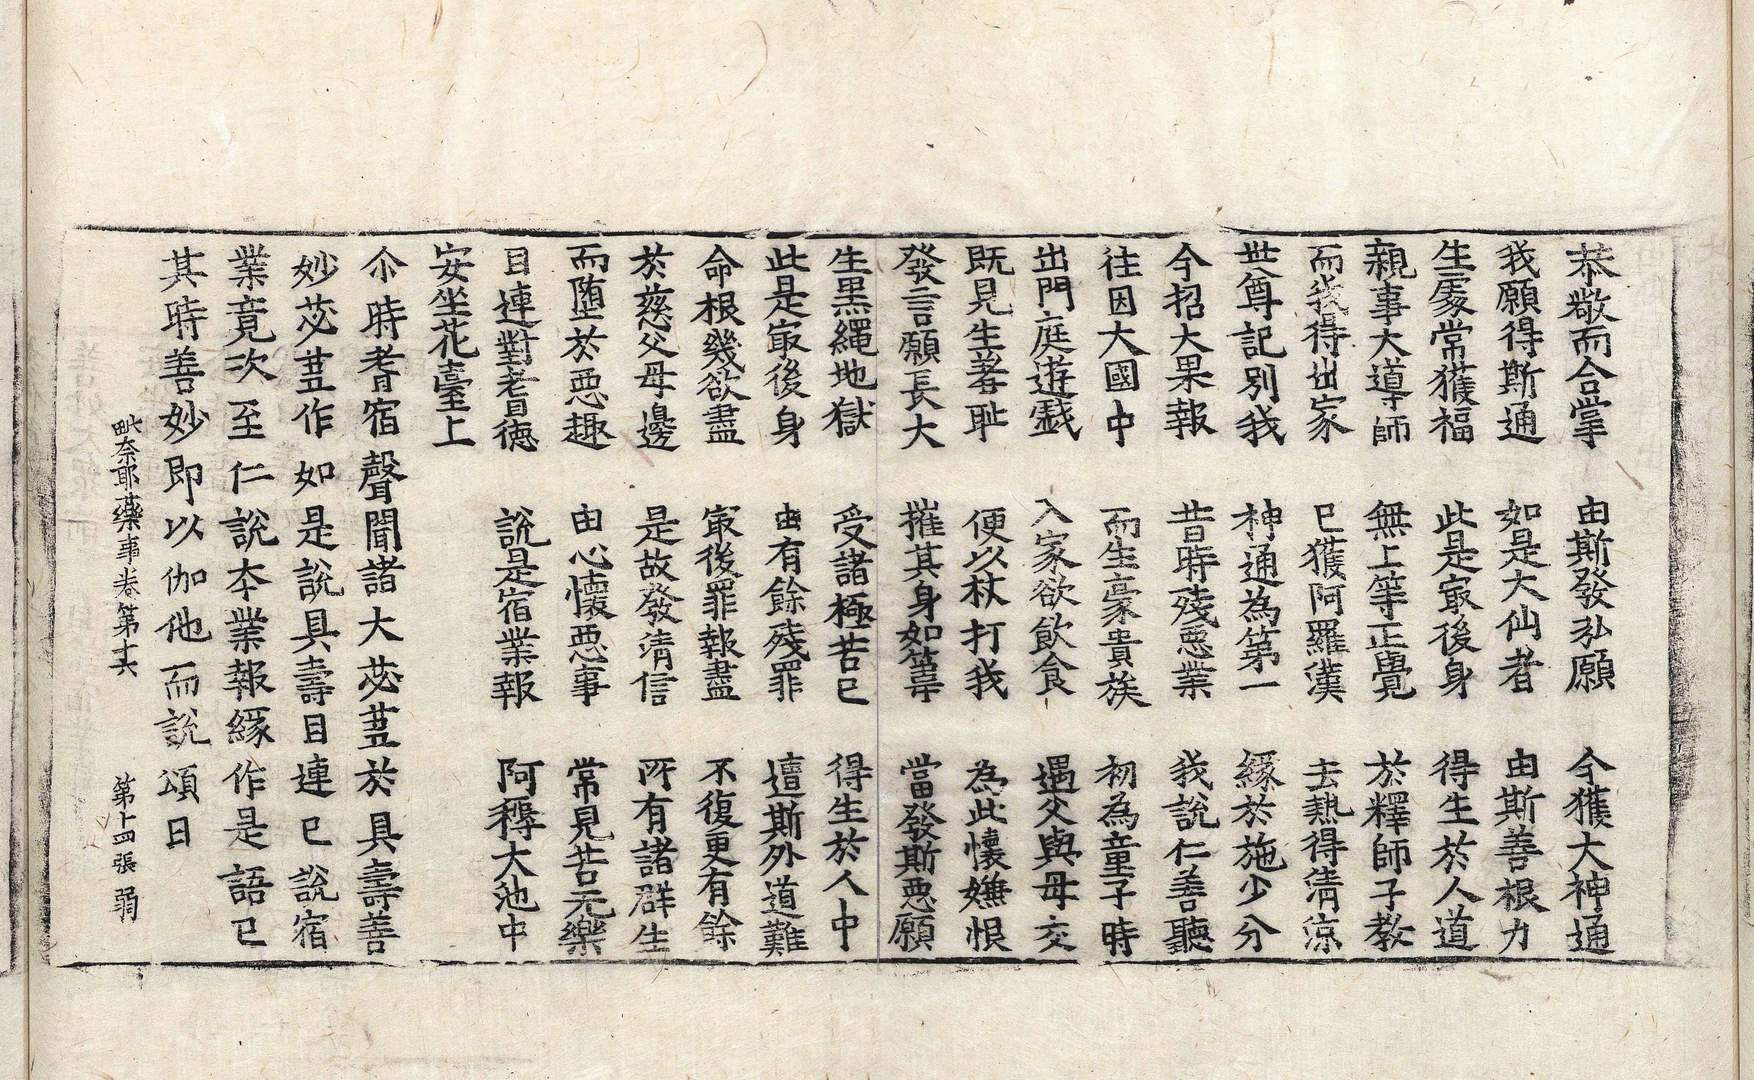 恭敬而合掌　由斯發弘願　今獲大神通
我願得斯通　如是大仙者　由斯善根力
生處常獲福　此是㝡後身　得生於人道
親事大導師　無上等正覺　於釋師子教
而我得出家　已獲阿羅漢　去熱得清涼
世尊記別我　神通為第一　緣於施少分
今招大果報　昔時殘惡業　我說仁善聽
往因大國中　而生豪貴族　初為童子時
出門庭遊戲　入家欲飲食　遇父與母交
既見生羞恥　便以杖打我　為此懷嫌恨
發言願長大　摧其身如葦　當發斯惡願
生黑繩地獄　受諸極苦已　得生於人中
此是㝡後身　由有餘殘罪　遭斯外道難
命根幾欲盡　㝡後罪報盡　不復更有餘
於慈父母邊　是故發清信　所有諸群生
而墮於惡趣　由心懷惡事　常見苦无樂
目連對耆德　說是宿業報　阿耨大池中
安坐花臺上
尒時耆宿聲聞諸大苾芻於具壽善
妙苾芻作如是說具壽目連已說宿
業竟次至仁說本業報緣作是語已
其時善妙即以伽他而說頌曰
毗奈耶藥事卷第十六　第十四張　弱